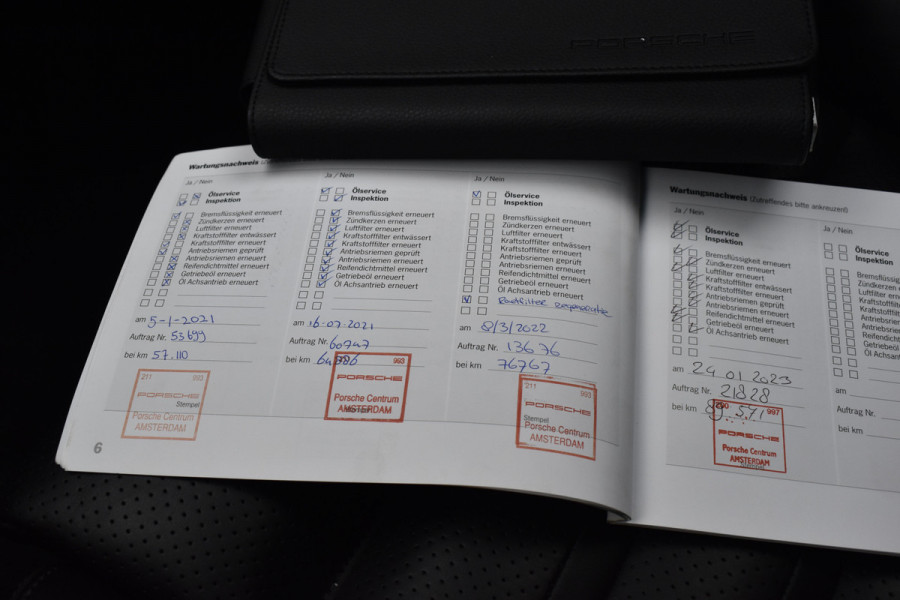 PORSCHE
Wartungsnachweis
Ja / Nein
Ölservice
Inspektion
Bremsflüssigkeit erneuert
Zündkerzen erneuert
Luftfilter erneuert
Kraftstofffilter entwässert
Kraftstofffilter erneuert
Antriebsriemen geprüft
Antriebsriemen erneuert
Reifendichtmittel erneuert
Getriebeöl erneuert
Öl Achsantrieb erneuert
am 5-1-2021
Auftrag Nr. 55699
bei km 57.110
211 993
PORSCHE
Stempel
Porsche Centrum
AMSTERDAM
6
Ja / Nein
Ölservice
Inspektion
Bremsflüssigkeit erneuert
Zündkerzen erneuert
Luftfilter erneuert
Kraftstofffilter entwässert
Kraftstofffilter erneuert
Antriebsriemen geprüft
Antriebsriemen erneuert
Reifendichtmittel erneuert
Getriebeöl erneuert
Öl Achsantrieb erneuert
am 16-07-2021
Auftrag Nr. 60747
bei km
993
PORSCHE
Porsche Centrum
AMSTERDAM
Ja / Nein
Ölservice
Inspektion
Bremsflüssigkeit erneuert
Zündkerzen erneuert
Luftfilter erneuert
Kraftstofffilter entwässert
Kraftstofffilter erneuert
Antriebsriemen geprüft
Antriebsriemen erneuert
Reifendichtmittel erneuert
Getriebeöl erneuert
Öl Achsantrieb erneuert
am 8/3/2022
Auftrag Nr. 13676
bei km 76767
211 993
PORSCHE
Stempel
Porsche Centrum
AMSTERDAM
Wartungsnachweis (Zutreffendes bitte ankreuzen!)
Ja / Nein
Ölservice
Inspektion
Bremsflüssigkeit erneuert
Zündkerzen erneuert
Luftfilter erneuert
Kraftstofffilter entwässert
Kraftstofffilter erneuert
Antriebsriemen geprüft
Antriebsriemen erneuert
Reifendichtmittel erneuert
Getriebeöl erneuert
Öl Achsantrieb erneuert
am 24 01 2023
Auftrag Nr. 21828
bei km
997
PORSCHE
Porsche Centrum
AMSTERDAM
Stempel
Ja / Nein
Ölservice
Inspektion
am
Auftrag Nr.
bei km